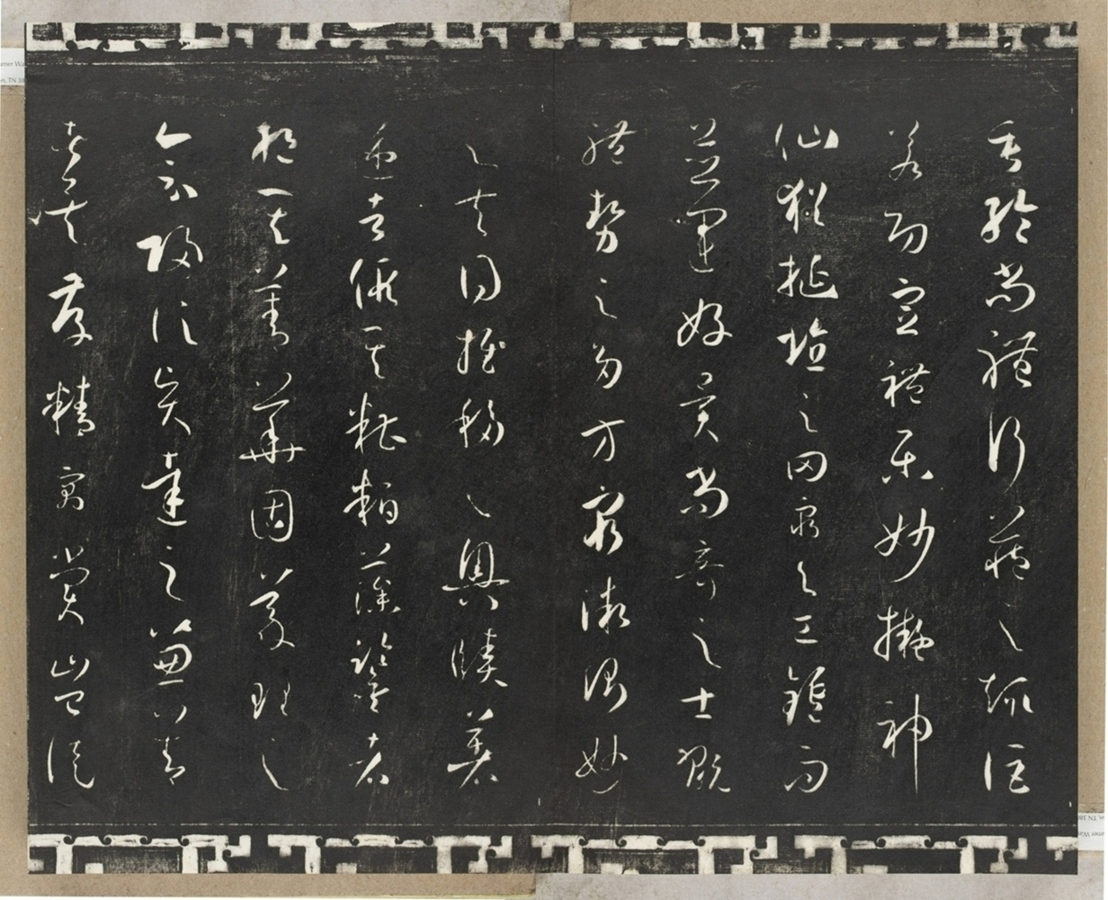 重於尚禮諸仙藝之流信
若而宣禮樂妙擬神
仙猶挺埴之罔窮与工鑪而
並運好異尚奇之士翫
體勢之多方窮微測妙
之夫得推移之奧賾著
述者假其糟粕藻鑒者
挹其菁華固義理之
會歸信賢達之兼善
者矣存精寓賞豈徒